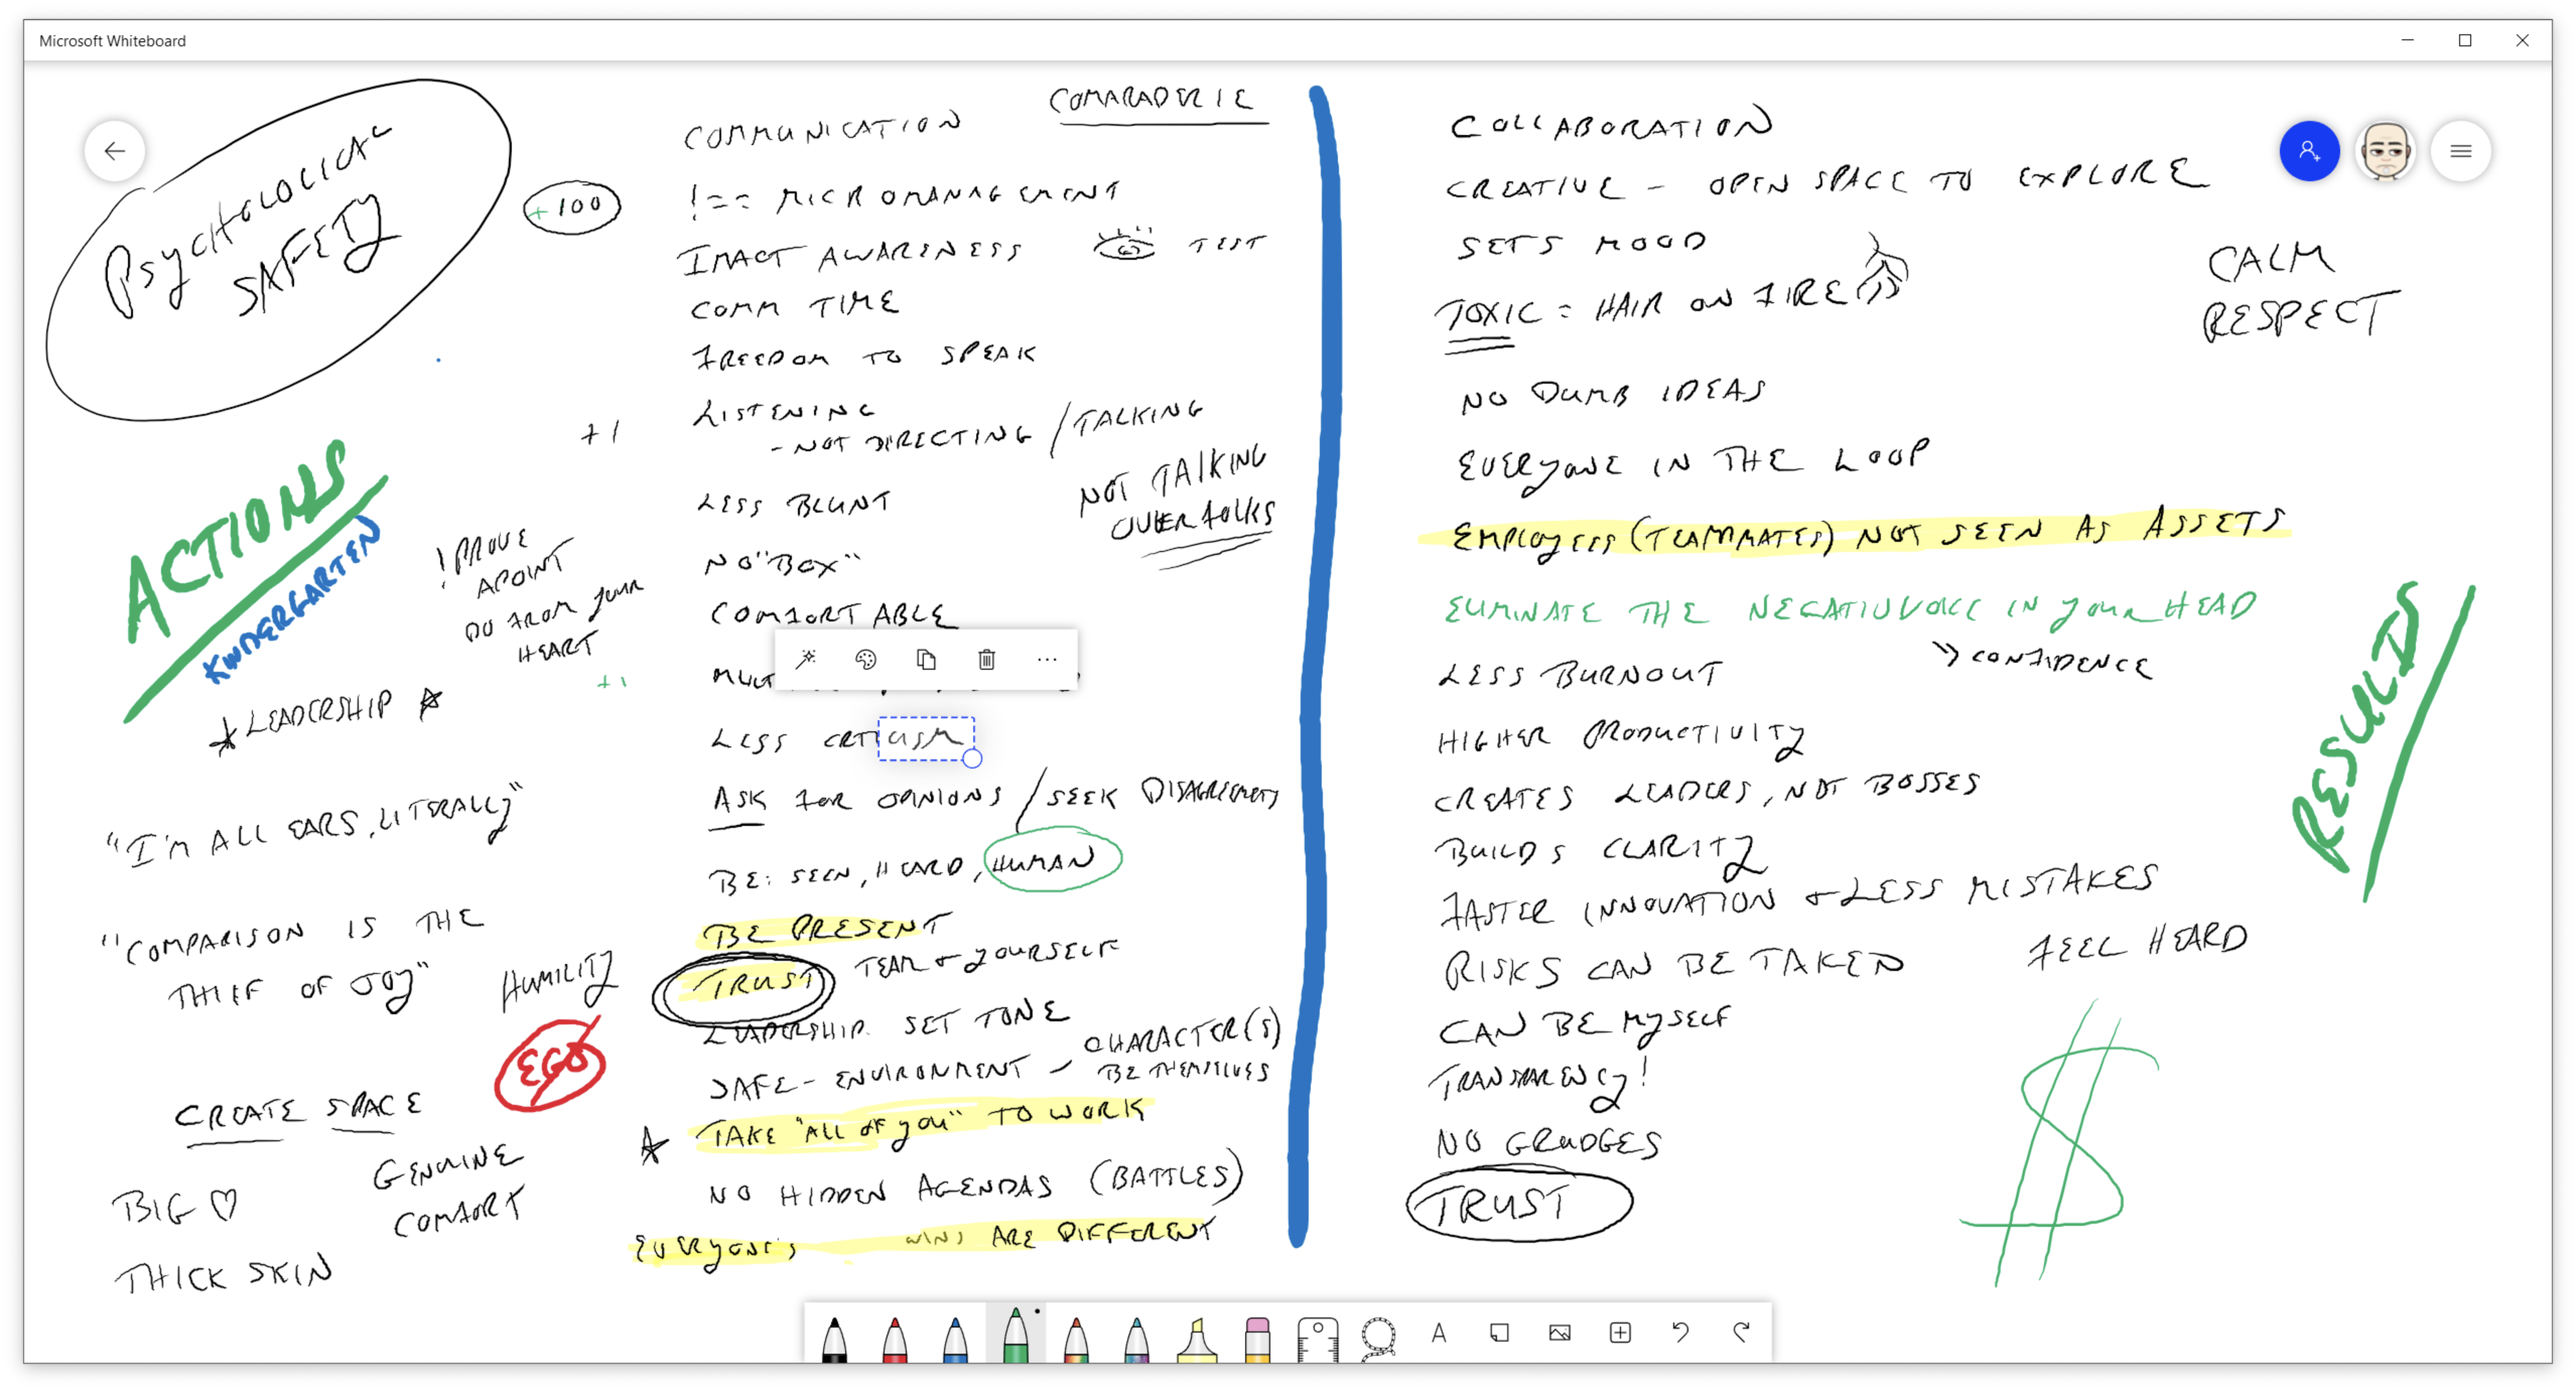 Microsoft Whiteboard
PSYCHOLOGICAL
SAFETY
+100
ACTIONS
KINDERGARTEN
+1
! PROVE
A POINT
DO FROM YOUR
HEART
+1
LEADERSHIP
"I'M ALL EARS, LITERALLY"
"COMPARISON IS THE
THIEF OF JOY"
HUMILITY
EGO
CREATE SPACE
GENUINE
COMFORT
BIG ♡
THICK SKIN
COMARADERIE
COMMUNICATION
!== MICROMANAGEMENT
IMACT AWARENESS TEST
COMM TIME
FREEDOM TO SPEAK
LISTENING
- NOT DIRECTING / TALKING
NOT TALKING
OVER FOLKS
LESS BLUNT
NO "BOX"
COMFORTABLE
LESS CRTICISM
ASK FOR OPINIONS / SEEK DISAGREEMENTS
BE: SEEN, HEARD, HUMAN
BE PRESENT
TRUST TEAM + YOURSELF
LEADERSHIP SET TONE
SAFE - ENVIRONMENT - CHARACTER(S)
BE THEMSELVES
TAKE "ALL OF YOU" TO WORK
NO HIDDEN AGENDAS (BATTLES)
EVERYONE'S WINS ARE DIFFERENT
COLLABORATION
CREATIVE - OPEN SPACE TO EXPLORE
SETS MOOD
TOXIC = HAIR ON FIRE
CALM
RESPECT
NO DUMB IDEAS
EVERYONE IN THE LOOP
EMPLOYEES (TEAMMATES) NOT SEEN AS ASSETS
ELIMINATE THE NEGATIVVOICE IN YOUR HEAD
» CONFIDENCE
LESS BURNOUT
HIGHER PRODUCTIVITY
CREATES LEADERS, NOT BOSSES
BUILDS CLARITY
FASTER INNOVATION + LESS MISTAKES
RISKS CAN BE TAKEN
FEEL HEARD
CAN BE MYSELF
TRANSPARENCY!
NO GRUDGES
TRUST
RESULTS
$